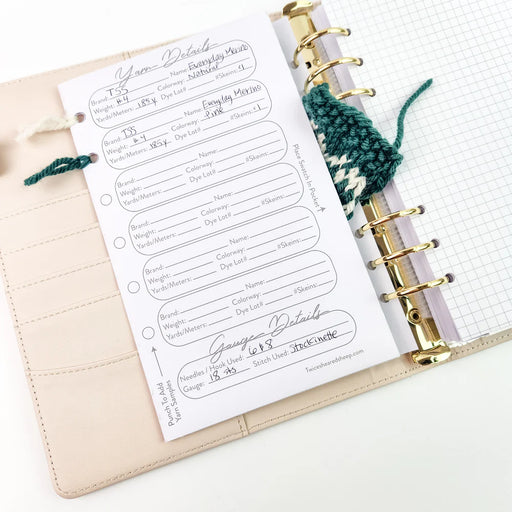 Yarn Details
Brand: TSS Name: Everyday Merino
Weight: #4 Colorway: Natural
Yards/Meters: 185y Dye Lot# #Skeins: <1
Brand: TSS Name: Everyday Merino
Weight: #4 Colorway: Pine
Yards/Meters: 185y Dye Lot# #Skeins: <1
Brand: Name:
Weight: Colorway:
Yards/Meters: Dye Lot# #Skeins:
Brand: Name:
Weight: Colorway:
Yards/Meters: Dye Lot# #Skeins:
Brand: Name:
Weight: Colorway:
Yards/Meters: Dye Lot# #Skeins:
Brand: Name:
Weight: Colorway:
Yards/Meters: Dye Lot# #Skeins:
Place Swatch In Pocket
Gauge Details
Needles / Hook Used: 6 & 8
Gauge: 18 sts Stitch Used: Stockinette
Punch To Add
Yarn Samples
Twiceshearedsheep.com